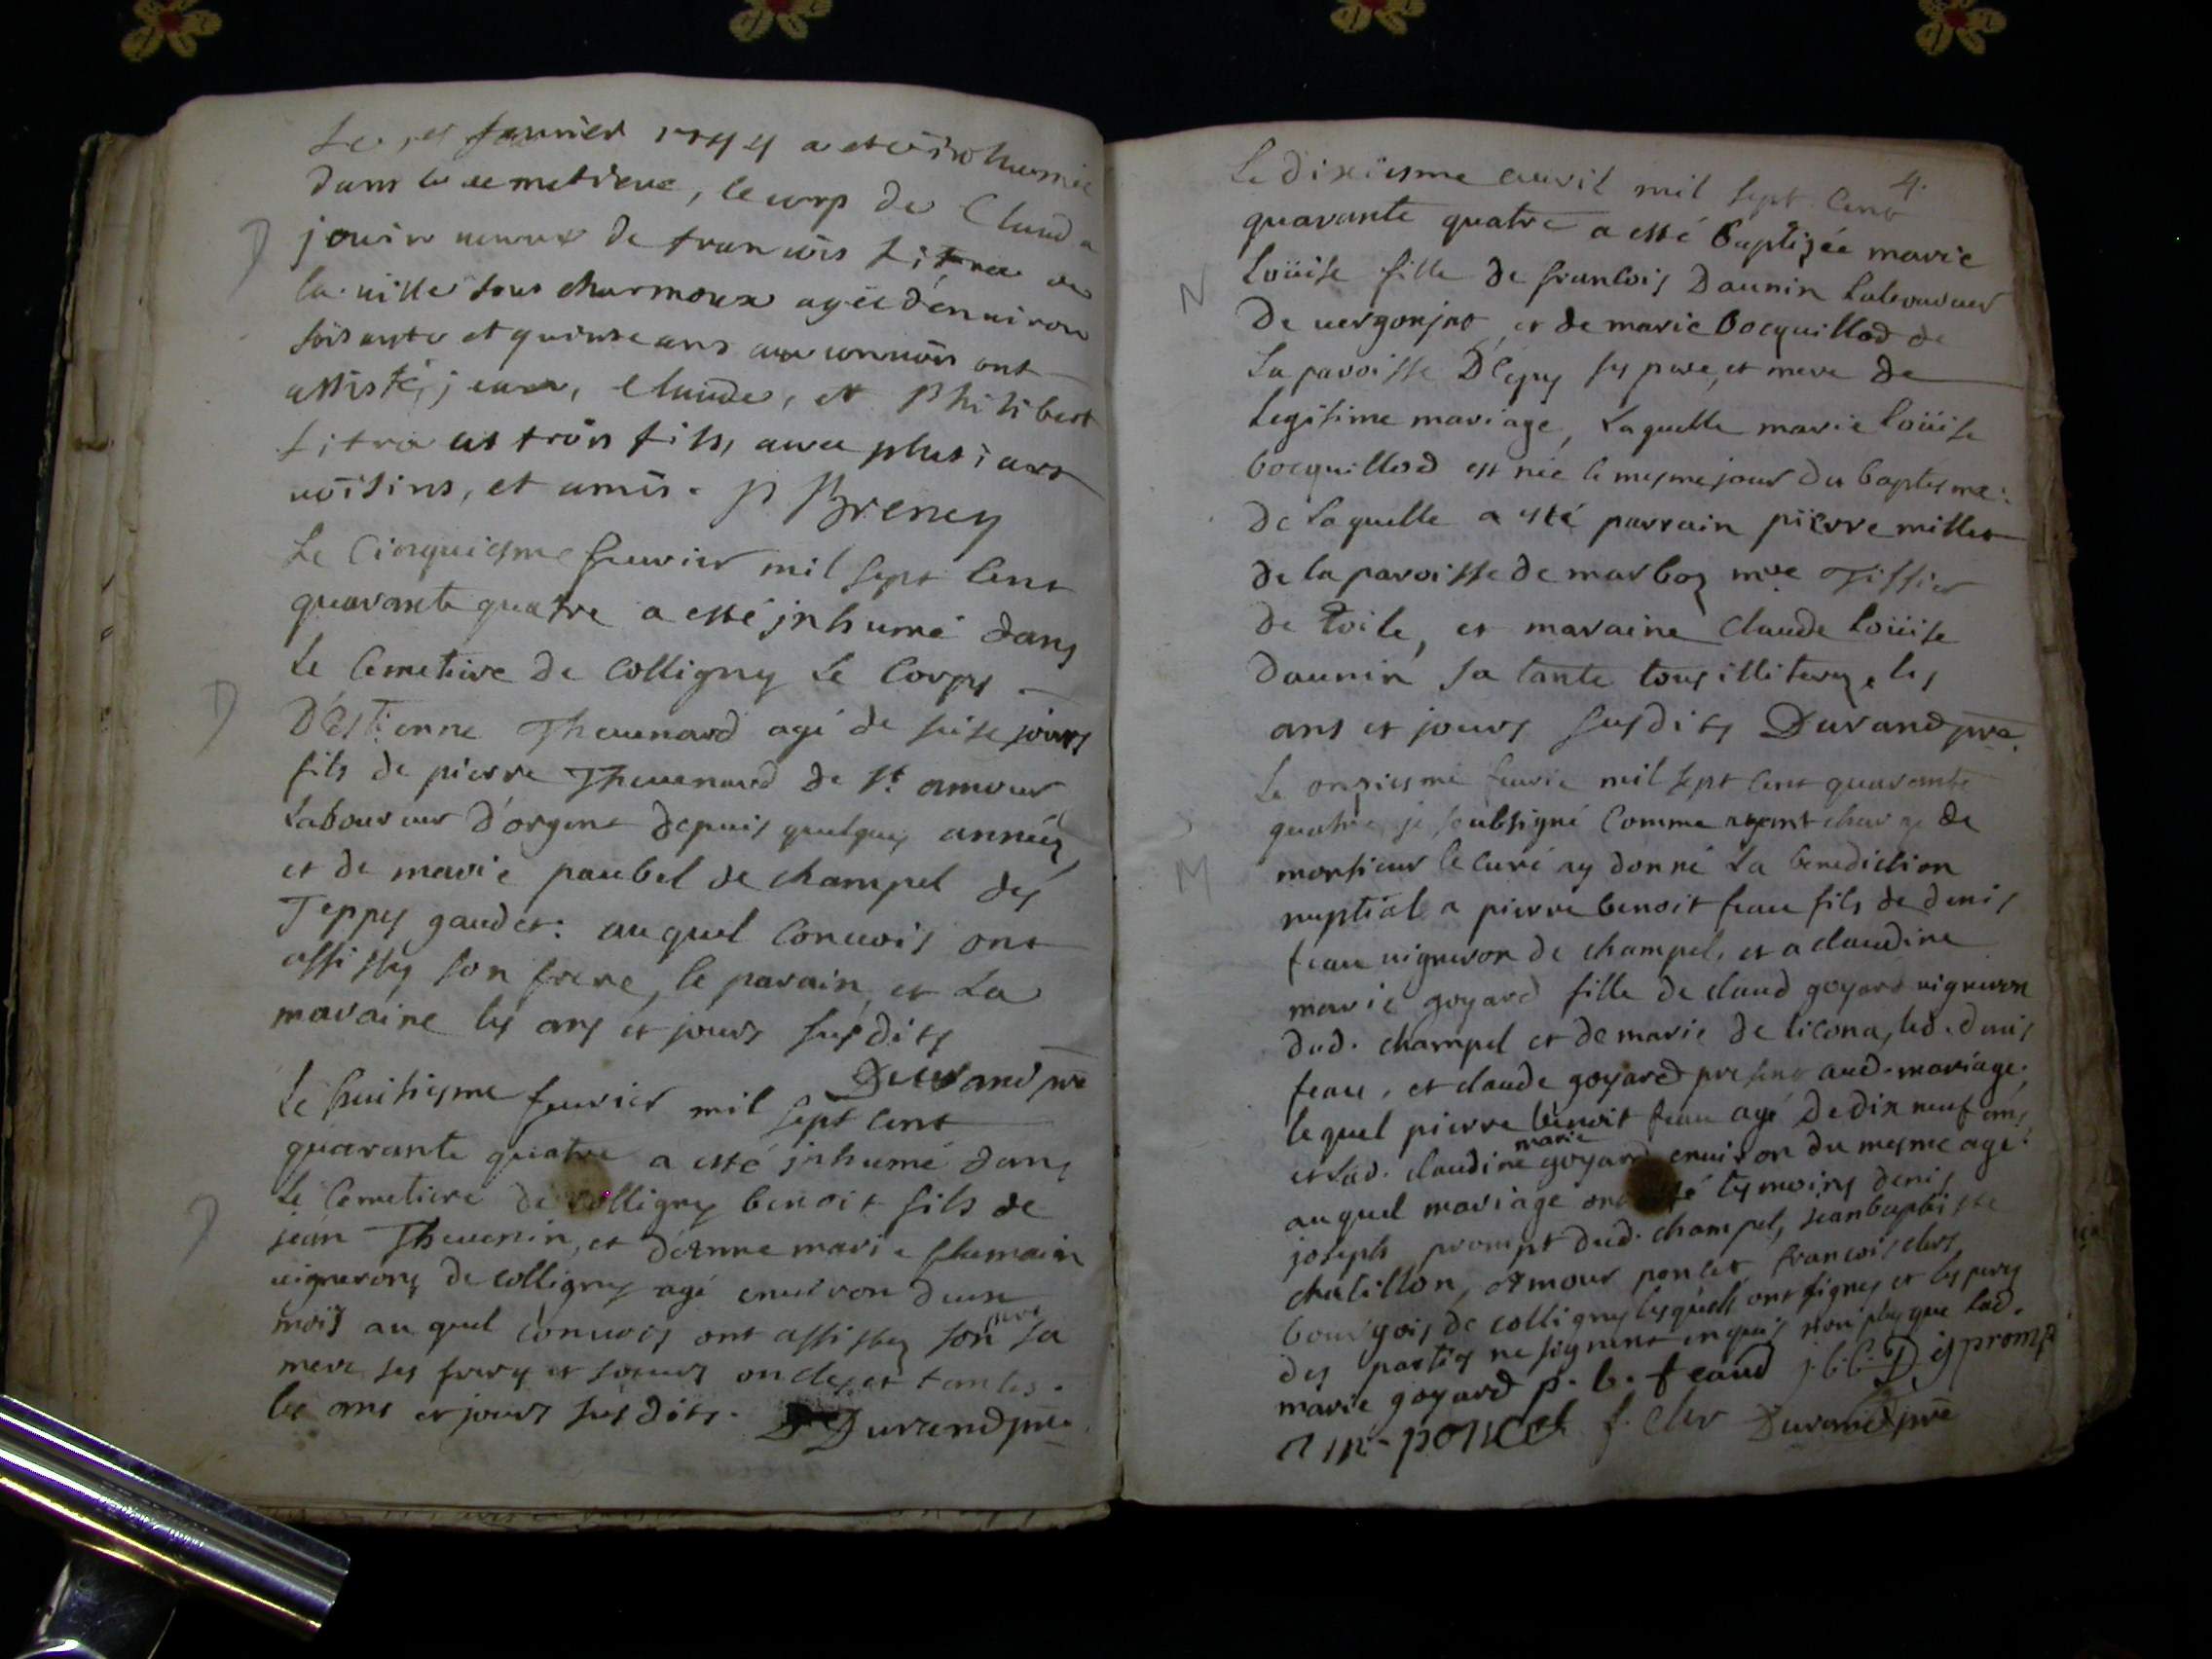 Le 1er feurier 1744 a eté inhumée
dans le cemetiere, le corp de Clauda
jouin ueuue de francois Litra de
la uille sous charmoux agée d'enuiron
soisante et quinse ans au conuois ont
assisté, jean, Claude, et Philibert
Litra ses trois fils, auec plusieurs
uoisins, et amis. P Breney
D
Le Cinquiesme feurier mil sept Cent
quarante quatre a esté jnhumé dans
Le Cemetiere de Colligny Le Corps
D'Estienne Theuenard agé de seise jours
fils de pierre Theuenard de st. amour
Laboureur d'orgent depuis quelques années
et de marie paubel de champel des
Teppes gaudet: auquel Conuois ont
assistés son frere, le parain, et La
maraine les ans et jours susdits
Durand pre
D
Le huitiesme feurier mil sept Cent
quarante quatre a esté jnhumé dans
Le Cemetiere de Colligny benoit fils de
jean Theuenin, et d'anne marie
uignerons de Colligny agé enuiron d'un
mois au quel conuois ont assistés son pere sa
mere ses freres et soeurs oncles et tantes.
les ans et jours susdits. Durand pre
D
4.
Le dixiesme auril mil sept Cent
quarante quatre a esté baptizée marie
Loüise fille de francois Daunin Laboureur
De uergonjat, et de marie bocquillod de
La paroisse D'Epy ses pere, et mere de
legitime mariage, Laquelle marie Loüise
bocquillod est née le mesme jour du baptesme:
de Laquelle a esté parrain pierre millet
de la paroisse de marboz mre Tissier
de toile, et maraine Claude Loüise
Daunin sa tante tous illiterez, les
ans et jours susdits Durand pre.
N
Le onziesme feurie mil sept Cent quarante
quatre, je soubsigné Comme ayent charge de
monsieur le Curé ay donné La benediction
nuptial a pierre benoit feau fils de denis
feau uigneron de champel, et a claudine
marie goyard fille de claud goyard uigneron
dud. champel et de marie de licona, led. denis
feau, et claude goyard present aud. mariage.
le quel pierre benoit feau agé De dix neuf ans
et Lad. claudine marie goyard enuiron du mesme age:
au quel mariage ont esté tesmoins denis
joseph prompt dud. champel, jean baptiste
chatillon, Amour poncet francois clers
bourgois de colligny lesquels ont signes et les peres
des parties ne signent enquis non plus que lad.
marie goyard p. b. feaud j. b. C. D j prompt
am-poncet f. cler Durand pre
M